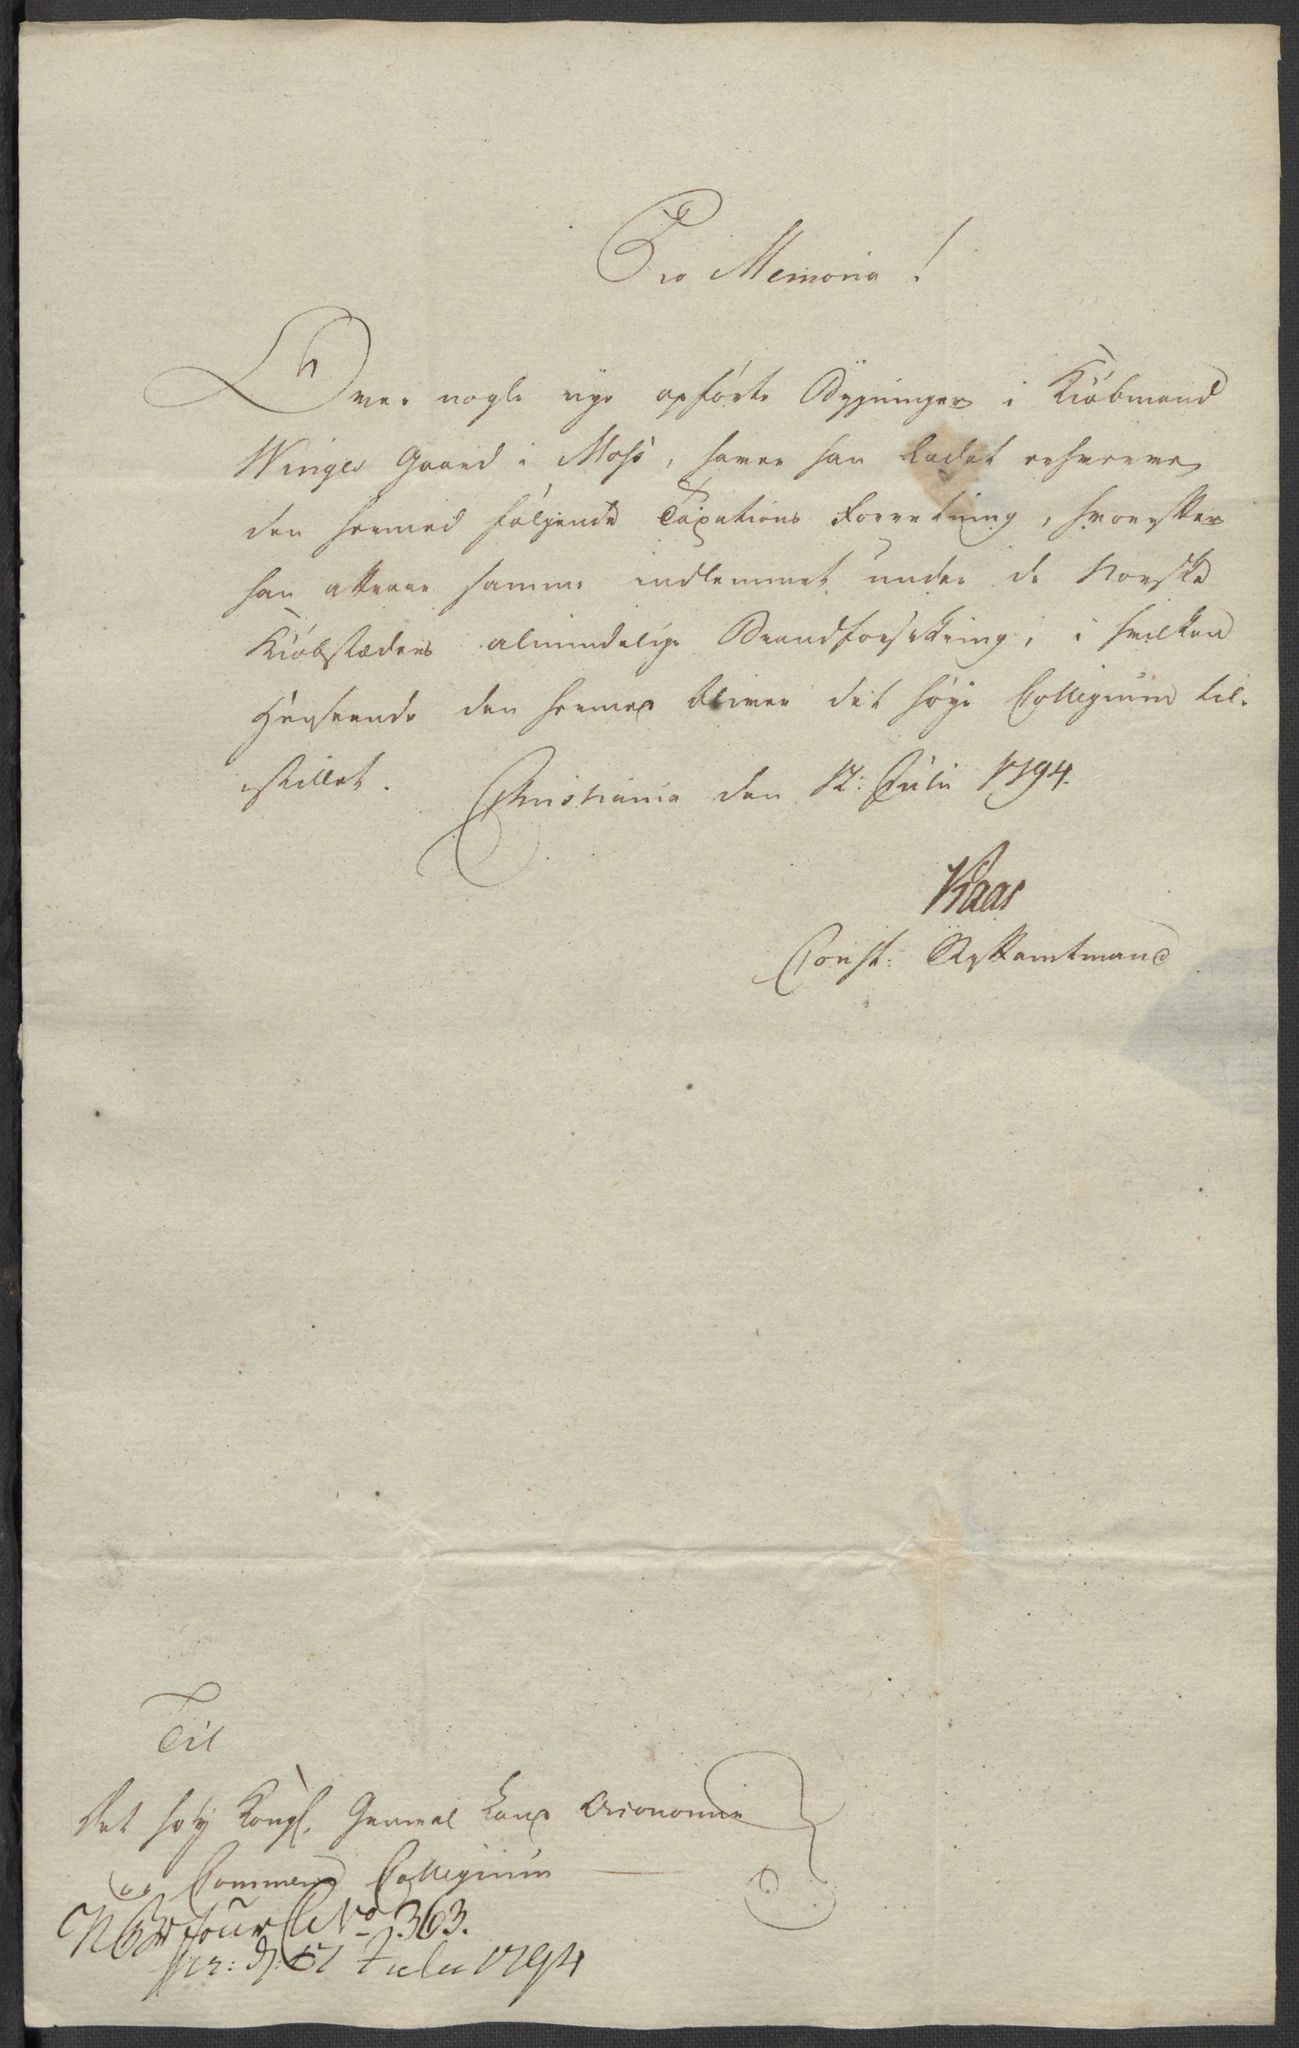 Pro Memoria!
Over nogle nye opførte Bygninger i Kiøbmand
Winges Gaard i Moss, haver han ladet erhverve
den hermed følgende Taxations Forretning, hvorefter
han attraar samme indlemmet under de Norske
Kiøbstæders almindelige Brandforsikring, i hvilken
Henseende den hermed bliver det høye Collegium til-
stillet. Christiania den 12: Julii 1794.
Kaas
Const: Stiftamtmand
Til
Det høy Kongl. General Land Oeconomie
og Commerce Collegium
Jour No 363.
pr: d: 27 Julii 1794